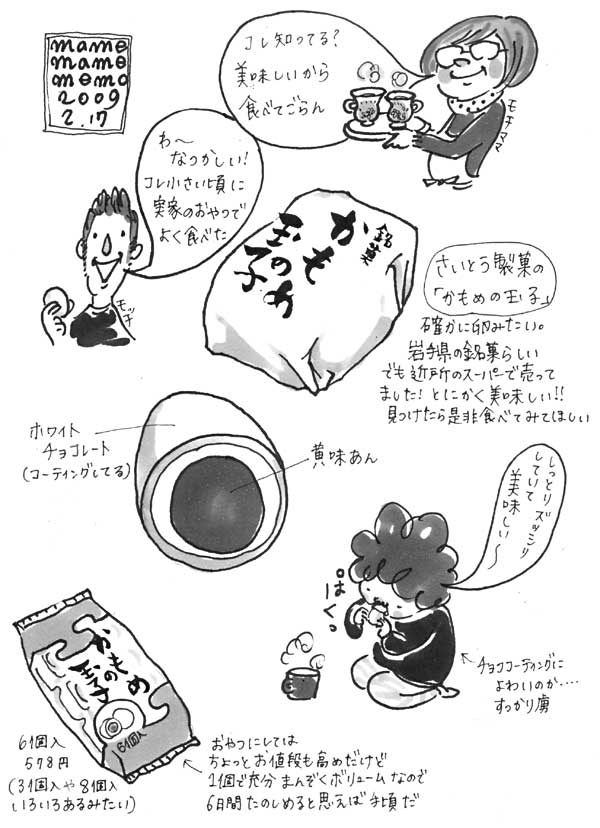 mame
mame
memo
2009
2.17
コレ知ってる?
美味しいから
食べてごらん
モチママ
わ〜
なつかしい!
コレ小さい頃に
実家のおやつで
よく食べた
モッチ
銘菓
かもめの
玉子
さいとう製菓の
「かもめの玉子」
確かに卵みたい。
岩手県の銘菓らしい
でも近所のスーパーで売って
ました!とにかく美味しい!!
見つけたら是非食べてみてほしい
ホワイト
チョコレート
(コーティングしてる)
黄味あん
しっとりズッシリ
していて
美味しい〜
ぱくっ
チョココーティングに
よわいのか・・・・
すっかり虜
かもめの
玉子
6個入
6個入
578円
(3個入や8個入
いろいろあるみたい)
おやつにしては
ちょっとお値段も高めだけど
1個で充分まんぞくボリュームなので
6日間たのしめると思えば手頃だ